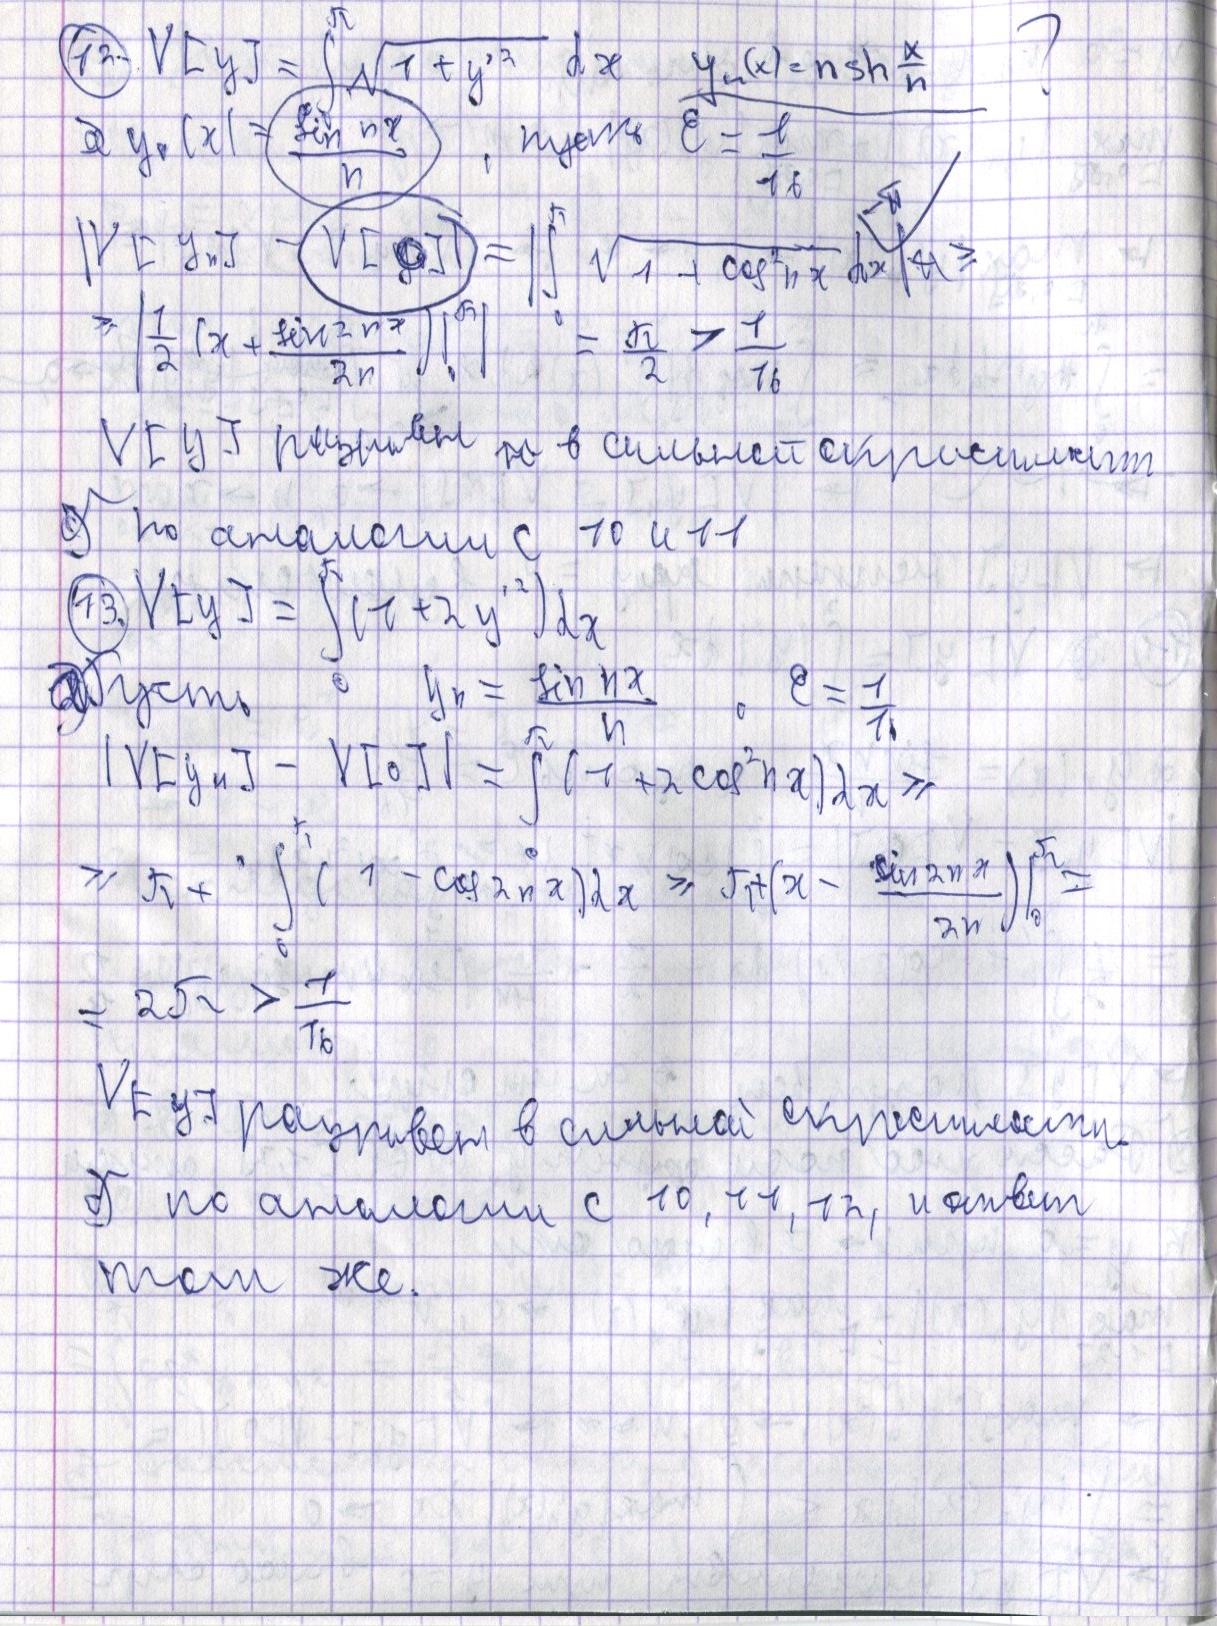 12. V[y] = ∫₀^π √(1 + y'²) dx   yₙ(x) = n sh x/n   ?
а) yₙ(x) = sin nx / n , пусть ε = 1/16
|V[yₙ] - V[0]| = |∫₀^π √(1 + cos² nx) dx - π| ≥
≥ |1/2 (x + sin 2nx / 2n)|₀^π| = π/2 > 1/16
V[y] разрывен в сильной окрестности
б) по аналогии с 10 и 11
13. V[y] = ∫₀^π (1 + 2y'²) dx
а) Пусть yₙ = sin nx / n , ε = 1/16
|V[yₙ] - V[0]| = ∫₀^π (1 + 2 cos² nx) dx ≥
≥ π + ∫₀^π (1 - cos 2nx) dx ≥ π + (x - sin 2nx / 2n)|₀^π =
= 2π > 1/16
V[y] разрывен в сильной окрестности.
б) по аналогии с 10, 11, 12, и ответ
такой же.